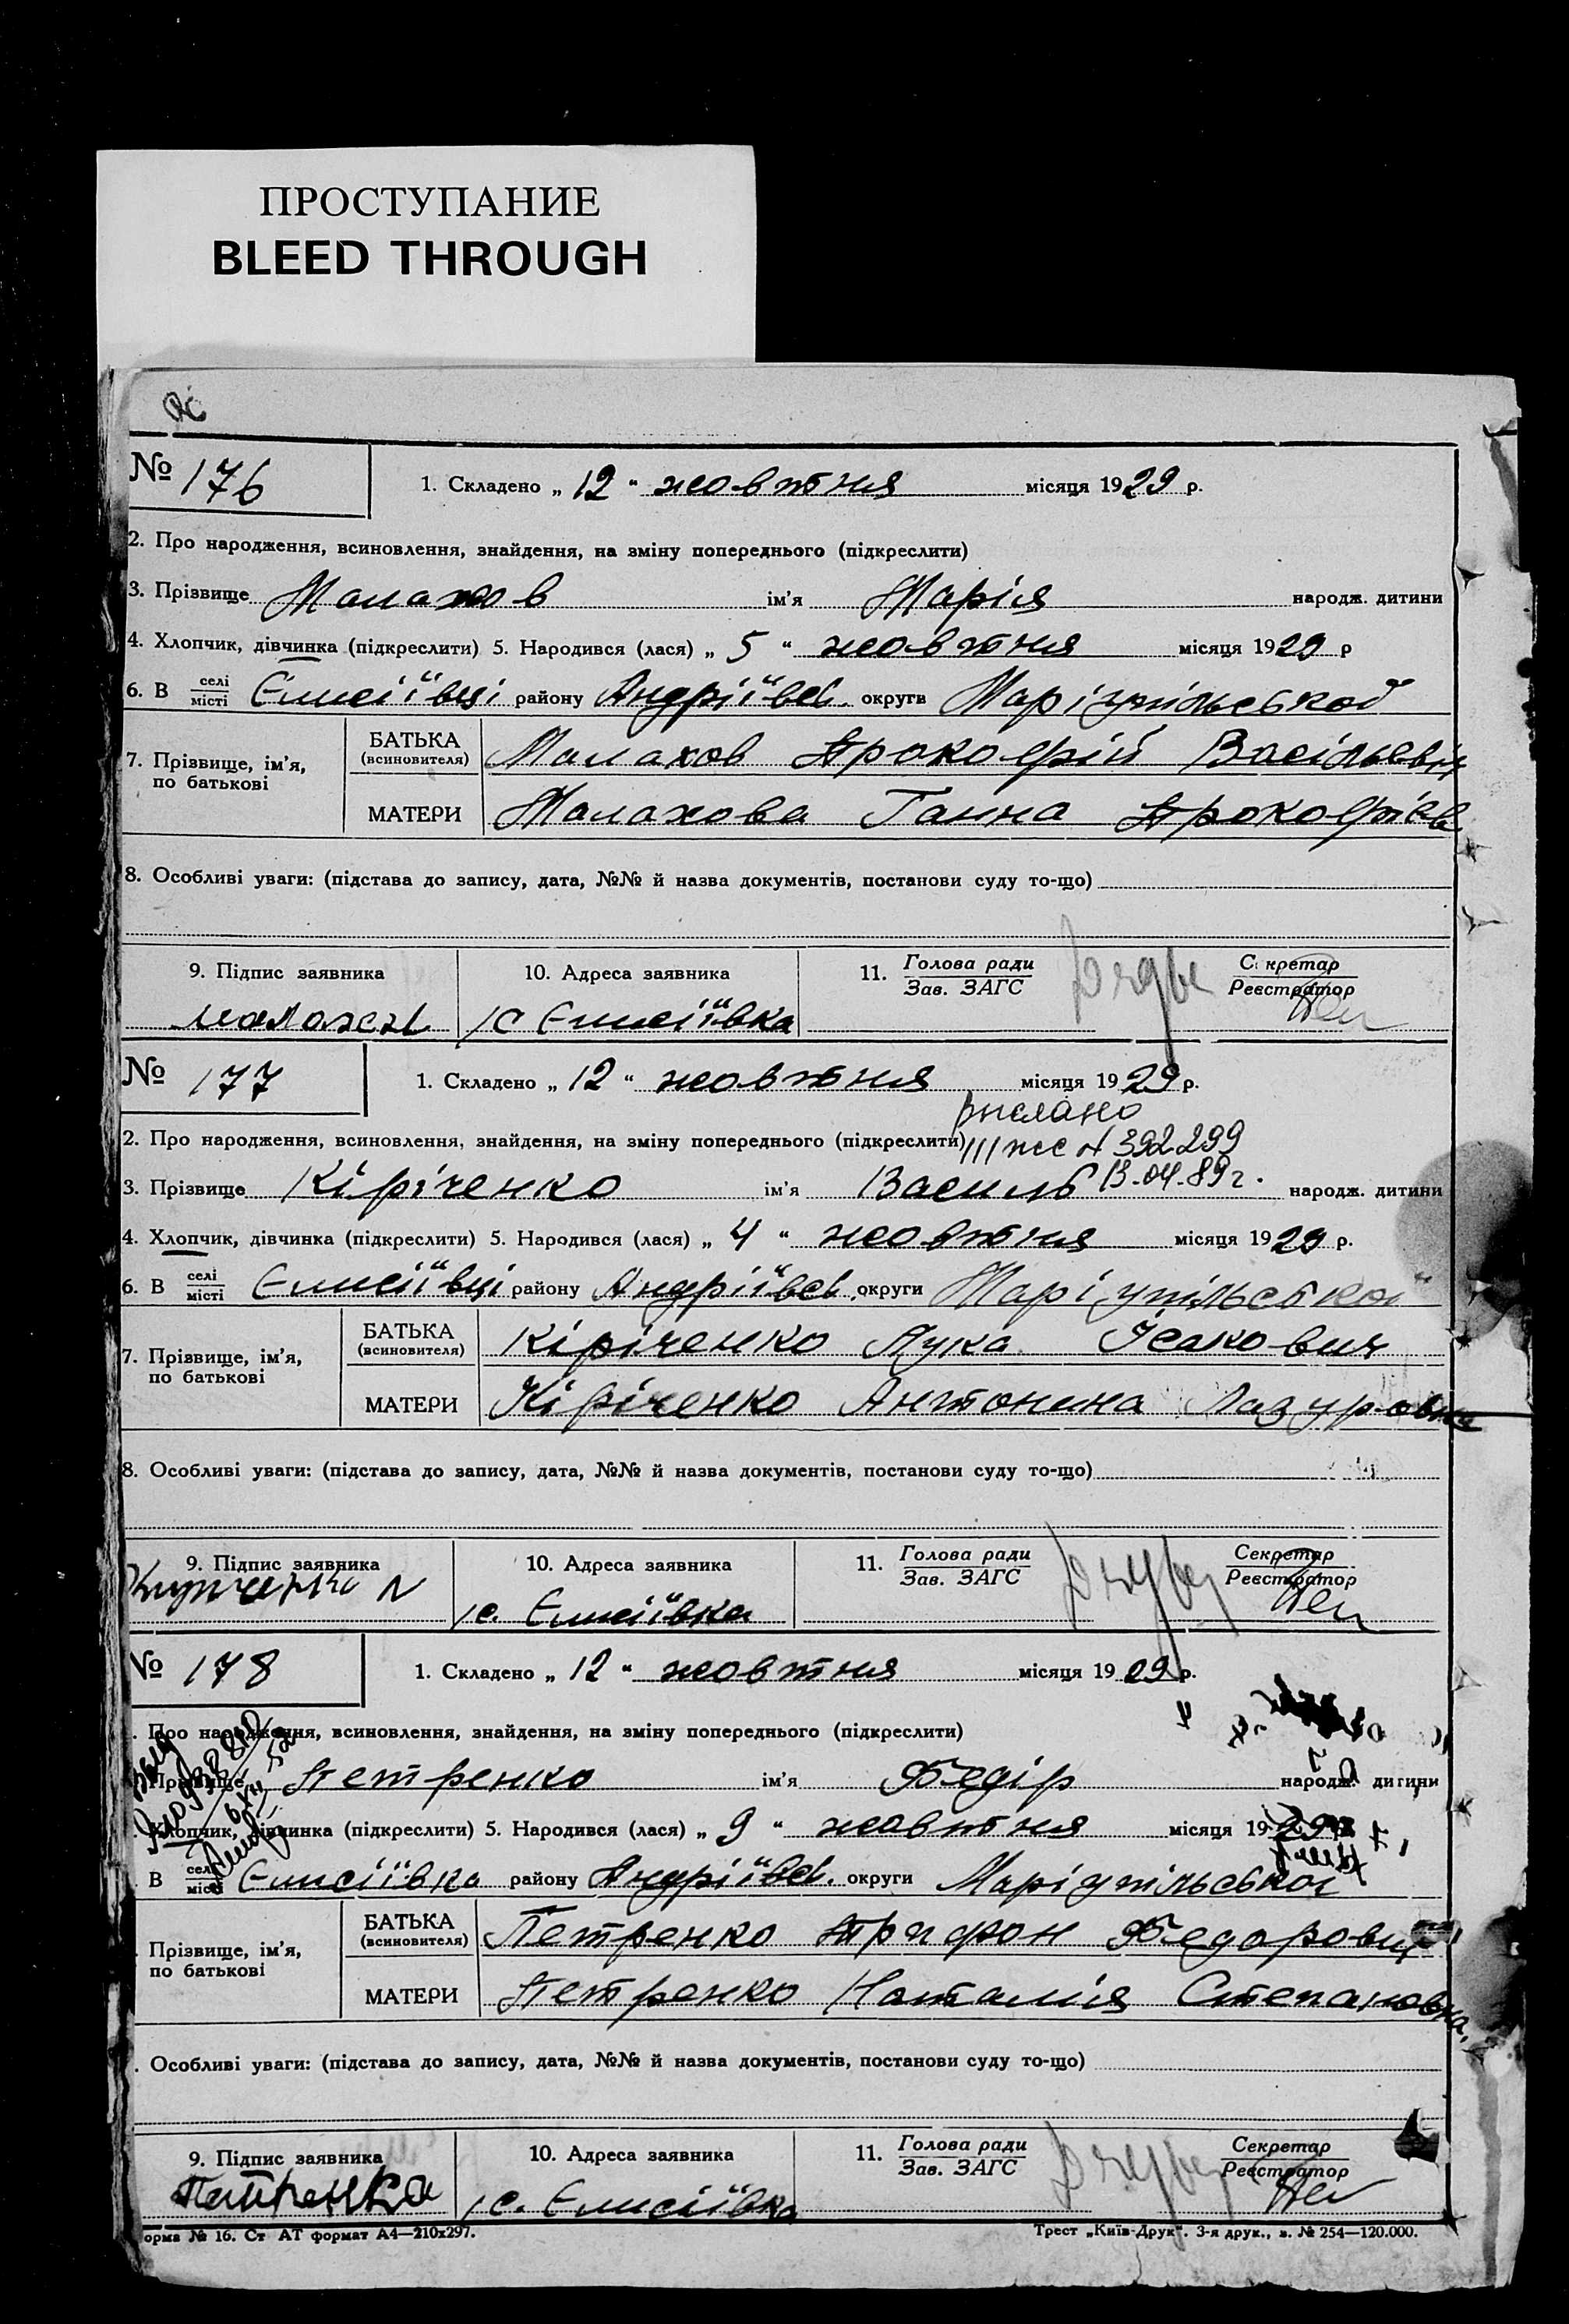 ПРОСТУПАНИЕ
BLEED THROUGH
№ 176 1. Складено „ 12 “ жовтня місяця 1929 р.
2. Про народження, всиновлення, знайдення, на зміну попереднього (підкреслити)
3. Прізвище Малахов ім’я Марія народж. дитини
4. Хлопчик, дівчинка (підкреслити) 5. Народився (лася) „ 5 “ жовтня місяця 1929 р
6. В селі місті Єлисіївці району Андріївсь. округи Маріупільської
7. Прізвище, ім’я, по батькові
БАТЬКА (всиновителя) Малахов Прокофій Васільевич
МАТЕРИ Малахова Ганна Прокофієв
8. Особливі уваги: (підстава до запису, дата, №№ й назва документів, постанови суду то-що)
9. Підпис заявника 10. Адреса заявника 11. Голова ради Зав. ЗАГС Секретар Реєстратор
с Єлисіївка
№ 177 1. Складено „ 12 “ жовтня місяця 1929 р.
2. Про народження, всиновлення, знайдення, на зміну попереднього (підкреслити)
III жс № 392299
3. Прізвище Кіріченко ім’я Василь 13-04-89г. народж. дитини
4. Хлопчик, дівчинка (підкреслити) 5. Народився (лася) „ 4 “ жовтня місяця 1929 р.
6. В селі місті Єлисіївці району Андріївсь. округи Маріупільської
7. Прізвище, ім’я, по батькові
БАТЬКА (всиновителя) Кіріченко Лука Ісакович
МАТЕРИ Кіріченко Антонина Лазуровна
8. Особливі уваги: (підстава до запису, дата, №№ й назва документів, постанови суду то-що)
9. Підпис заявника 10. Адреса заявника 11. Голова ради Зав. ЗАГС Секретар Реєстратор
с. Єлисіївка
№ 178 1. Складено „ 12 “ жовтня місяця 1929 р.
. Про народження, всиновлення, знайдення, на зміну попереднього (підкреслити)
Прізвище Петренко ім’я Федір народж. дитини
. Хлопчик, дівчинка (підкреслити) 5. Народився (лася) „ 9 “ жовтня місяця 1929 р.
В селі місті Єлисіївка району Андріївсь. округи Маріупільської
Прізвище, ім’я, по батькові
БАТЬКА (всиновителя) Петренко Трифон Федорович
МАТЕРИ Петренко Наталія Степановна.
. Особливі уваги: (підстава до запису, дата, №№ й назва документів, постанови суду то-що)
9. Підпис заявника 10. Адреса заявника 11. Голова ради Зав. ЗАГС Секретар Реєстратор
Петренка с. Єлисіївка
орма № 16. Ст АТ формат А4—210х297. Трест „Київ-Друк“. 3-я друк., з. № 254—120.000.